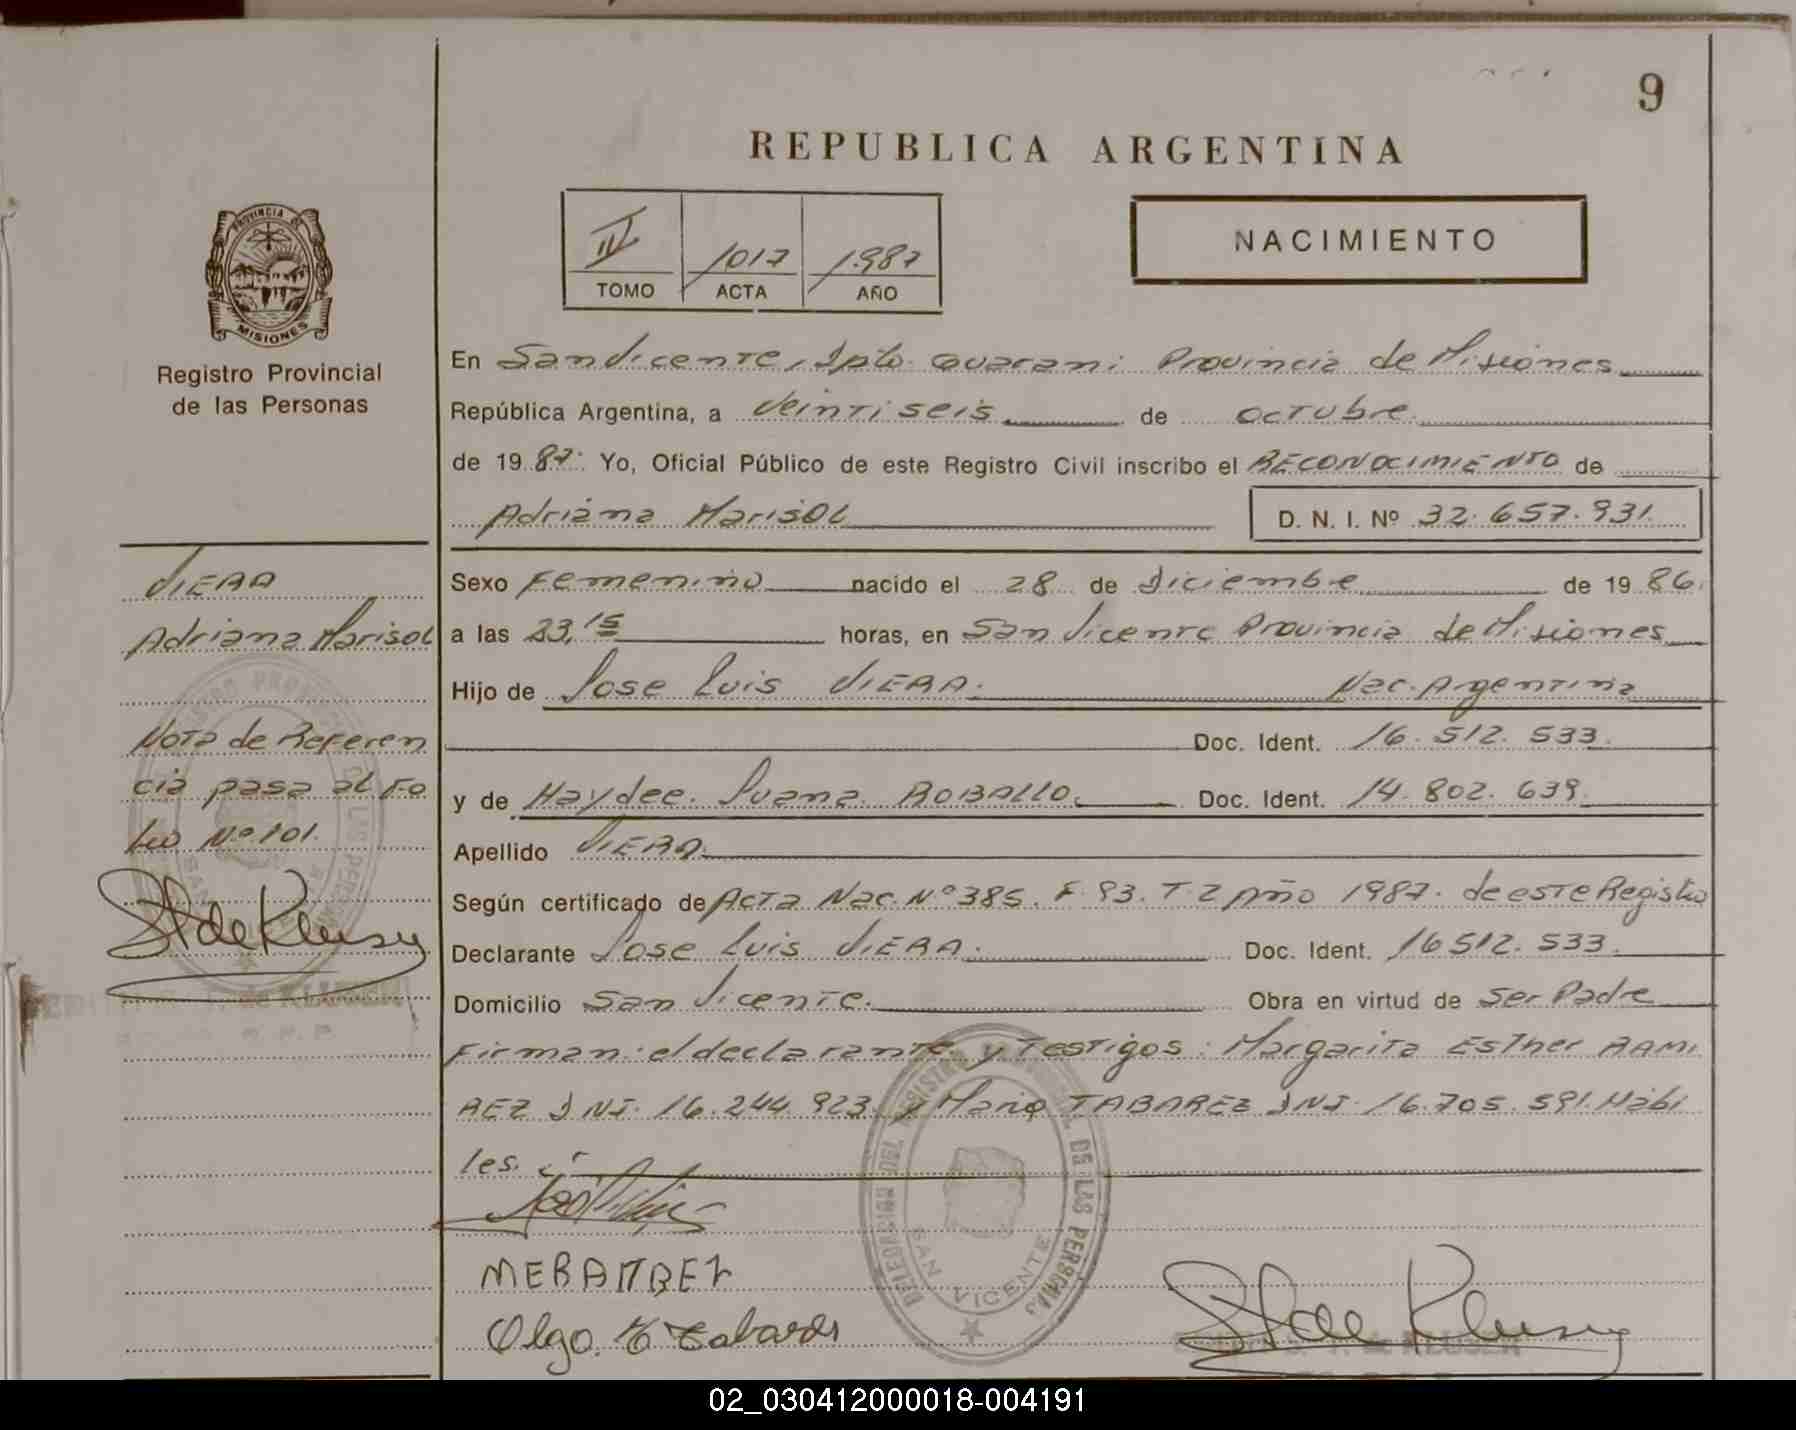 9
REPUBLICA ARGENTINA
IV 1017 1987
TOMO ACTA AÑO
NACIMIENTO
PROVINCIA DE
MISIONES
Registro Provincial
de las Personas
En San Vicente, Dpto. Guarani Provincia de Misiones
República Argentina, a Veintiseis de octubre
de 1987. Yo, Oficial Público de este Registro Civil inscribo el RECONOCIMIENTO de
Adriana Marisol D. N. I. Nº 32.657.931.
Sexo Femenino nacido el 28 de Diciembre de 1986.
a las 23,15 horas, en San Vicente Provincia de Misiones
Hijo de Jose Luis VIERA. Nac. Argentina
Doc. Ident. 16.512.533.
y de Haydee. Juana ROBALLO. Doc. Ident. 14.802.639.
Apellido VIERA.
Según certificado de Acta Nac. Nº 385. F. 93. T-2 Año 1987. de este Registro
Declarante Jose Luis VIERA. Doc. Ident. 16512.533.
Domicilio San Vicente. Obra en virtud de Ser Padre
Firman: el declarante y Testigos: Margarita Esther RAMI
REZ DNI. 16.244.923. y Mario TABAREZ DNI. 16.705.591. Habi
les.
VIERA
Adriana Marisol
Nota de Referen
cia pasa al Fo
lio Nº 101.
DELEGACION DEL REGISTRO PROVINCIAL DE LAS PERSONAS
SAN VICENTE
02_030412000018-004191